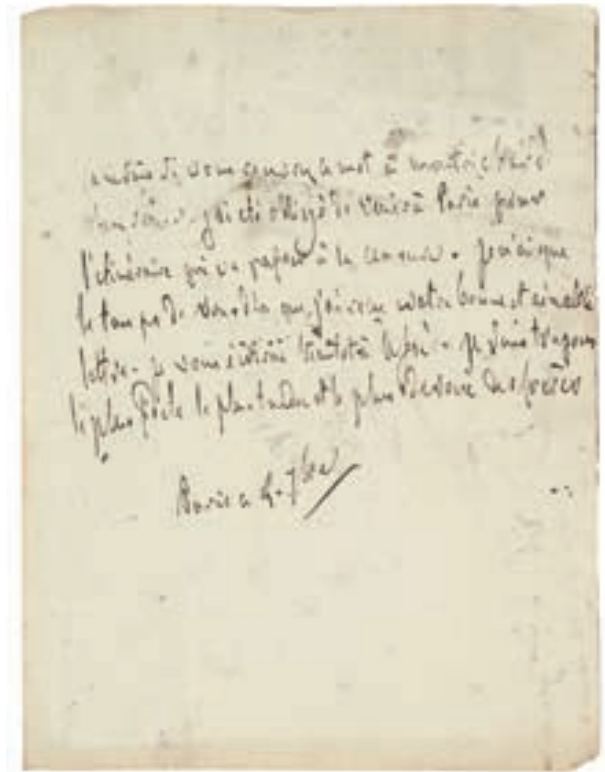 un mot à
j'ai été obligé de venir à Paris pour
l'itinéraire qui va passer à la censure. Je n'ai que
le temps de vous dire que j'ai reçu votre bonne et aimable
lettre. Je vous écrirai bientôt. Je suis toujours
le plus fidèle le plus tendre et le plus dévoué des frères
Paris ce 4. 7bre